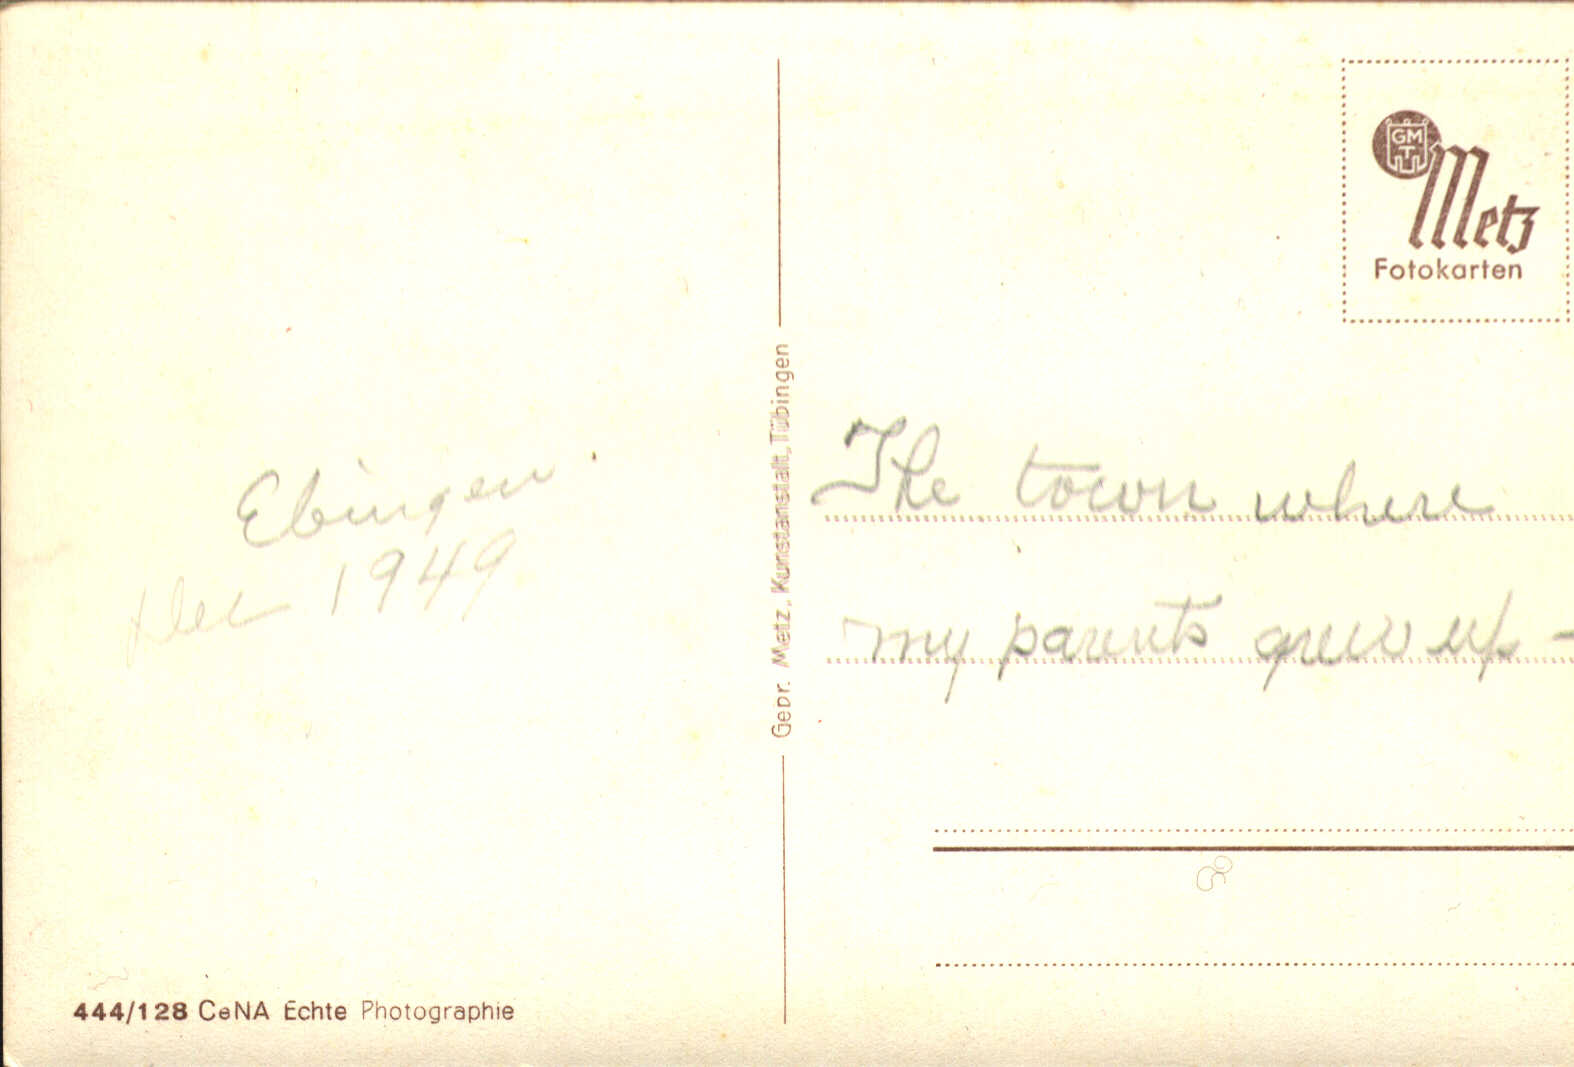 Ebingen
Dec 1949
444/128 CeNA Echte Photographie
Gebr. Metz, Kunstanstalt, Tübingen
GMT
Metz
Fotokarten
The town where
my parents grew up -